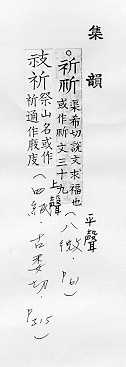 集韻
祈 渠希切說文求福也
或作 文三十九
平聲(八微,P61)
祈 祭山名或作
祈通作庪庋
上聲(四紙 古委切,
P315)